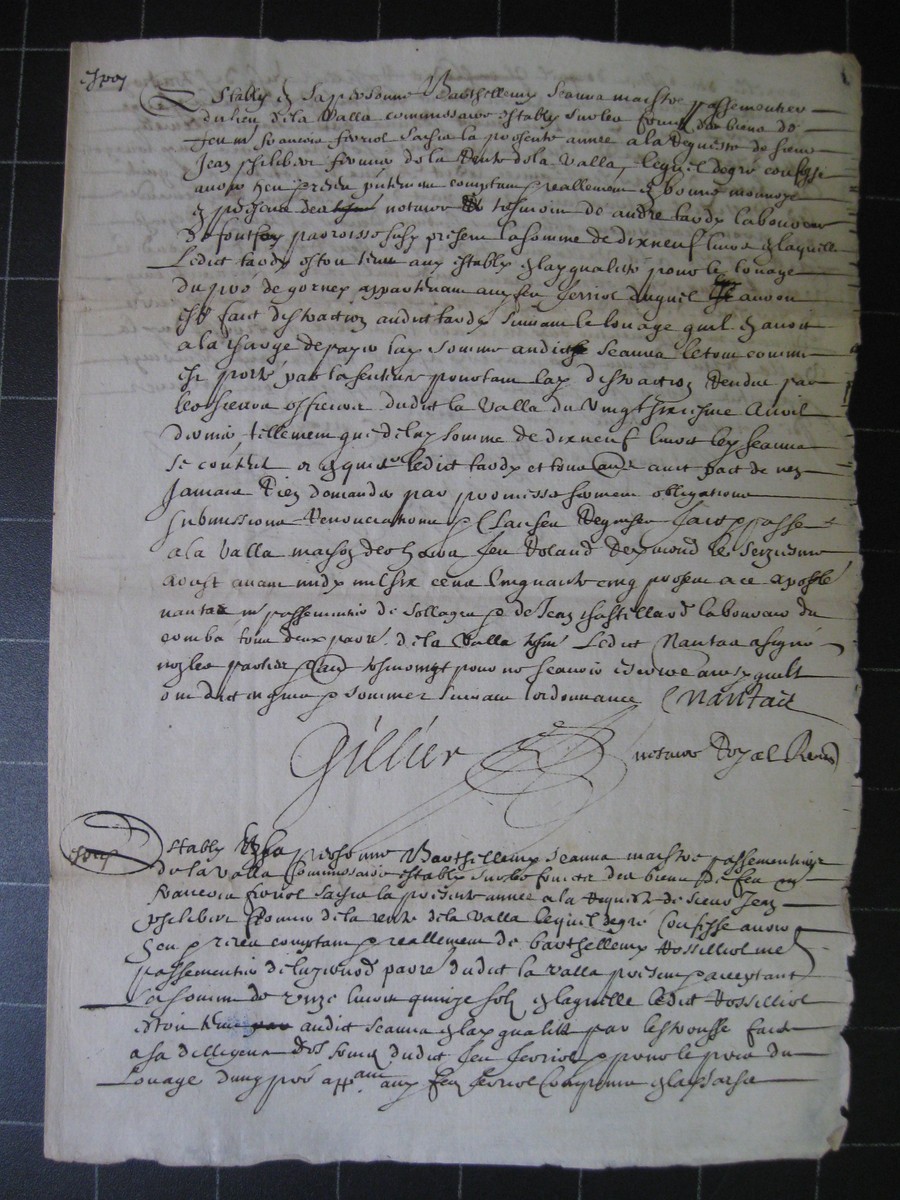 Estably en sa personne Barthellemy Jeanna maistre passementier
du lieu de la Valla commissaire estably sur les fruits des biens de
feu m francois ferriol saisis la presente annee a la Requeste de sieur
Jean philibert fermier de la Rente de la Valla, lequel de gré confesse
avoir heu et receu comptant et reallement en bonne monnoye
en presence des notaire tesmoin de andre tardy laboureur
de paroisse susd present la somme de dixneuf livres en laquelle
Ledict tardy estoit tenu aux estably en lad qualitté pour le louage
du pré de gorney appartenant aud feu ferriol duquel avoit
esté faict distraction audict tardy suivant le louage quil en avoit
a la charge de payer lad somme audict Jeanna le tout comme
est porté par la sentence portant lad distraction Rendue par
les sieurs officiers dudict la Valla du Vingt Avril
dernier tellement que de lad somme de dixneuf livres led Jeanna
se contente et en quitte ledict tardy et tous avec pact de nen
Jamais Rien demander par promesse serment obligations
submissions Renonciations et clauses Requises faict et passé
a la Valla maison des hoirs feu Roland Reymond le seiziesme
aoust avant midy mil six cens cinquante cinq present a ce
nantas m passementier de et de Jean chastillard laboureur du
combé tous deux parre de la Valla tesm Ledict Nantas a signé
non les parties tesmoingt pour ne scavoir escrire ainsy quilz
ont dict enquis et sommes suivant lordonnance Nantas
Gillier notaire Royal
Estably en sa personne Barthellemy Jeanna maistre passementier
de la Valla commissaire estably sur les fruicts des biens de feu m
francois ferriol saisis la presente annee a la Requeste de sieur Jean
philibert fermier de la rente de la Valla lequel de gré confesse avoir
heu et receu comptant et reallement de barthellemy Rossilliol me
passementier de parre dudict la Valla present et acceptant
La somme de unze livres quinze solz en laquelle ledict Rossilliol
estoit tenu audict Jeanna en lad qualitté par faict
a sa dilligence des fruicts dudict feu ferriol et pour le prix du
Louage dung pré app.ant aud feu ferriol comprins en la saisie